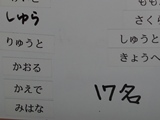 しゅら
りゅうと
かおる
かえで
みはな
さく
しゅうと
きょうへ
17名